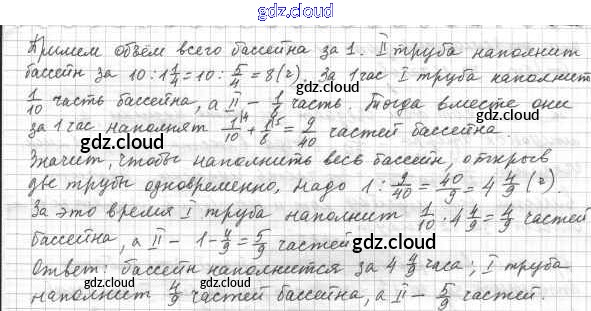 gdz.cloud
Примем объём всего бассейна за 1. II труба наполнит
gdz.cloud
бассейн за 10 : 1 1/4 = 10 : 5/4 = 8 (г). За 1 час I труба наполнит
gdz.cloud
1/10 часть бассейна, а II – 1/8 часть. Тогда вместе они
gdz.cloud
за 1 час наполнят 1/10 \4 + 1/8 \5 = 9/40 частей бассейна.
gdz.cloud
Значит, чтобы наполнить весь бассейн, открыв
две трубы одновременно, надо 1 : 9/40 = 40/9 = 4 4/9 (г).
gdz.cloud
За это время I труба наполнит 1/10 · 4 4/9 = 4/9 частей
бассейна, а II – 1 - 4/9 = 5/9 частей
gdz.cloud
gdz.cloud
Ответ: бассейн наполнится за 4 4/9 часа; I труба
наполнит 4/9 частей бассейна, а II – 5/9 частей.
gdz.cloud
gdz.cloud